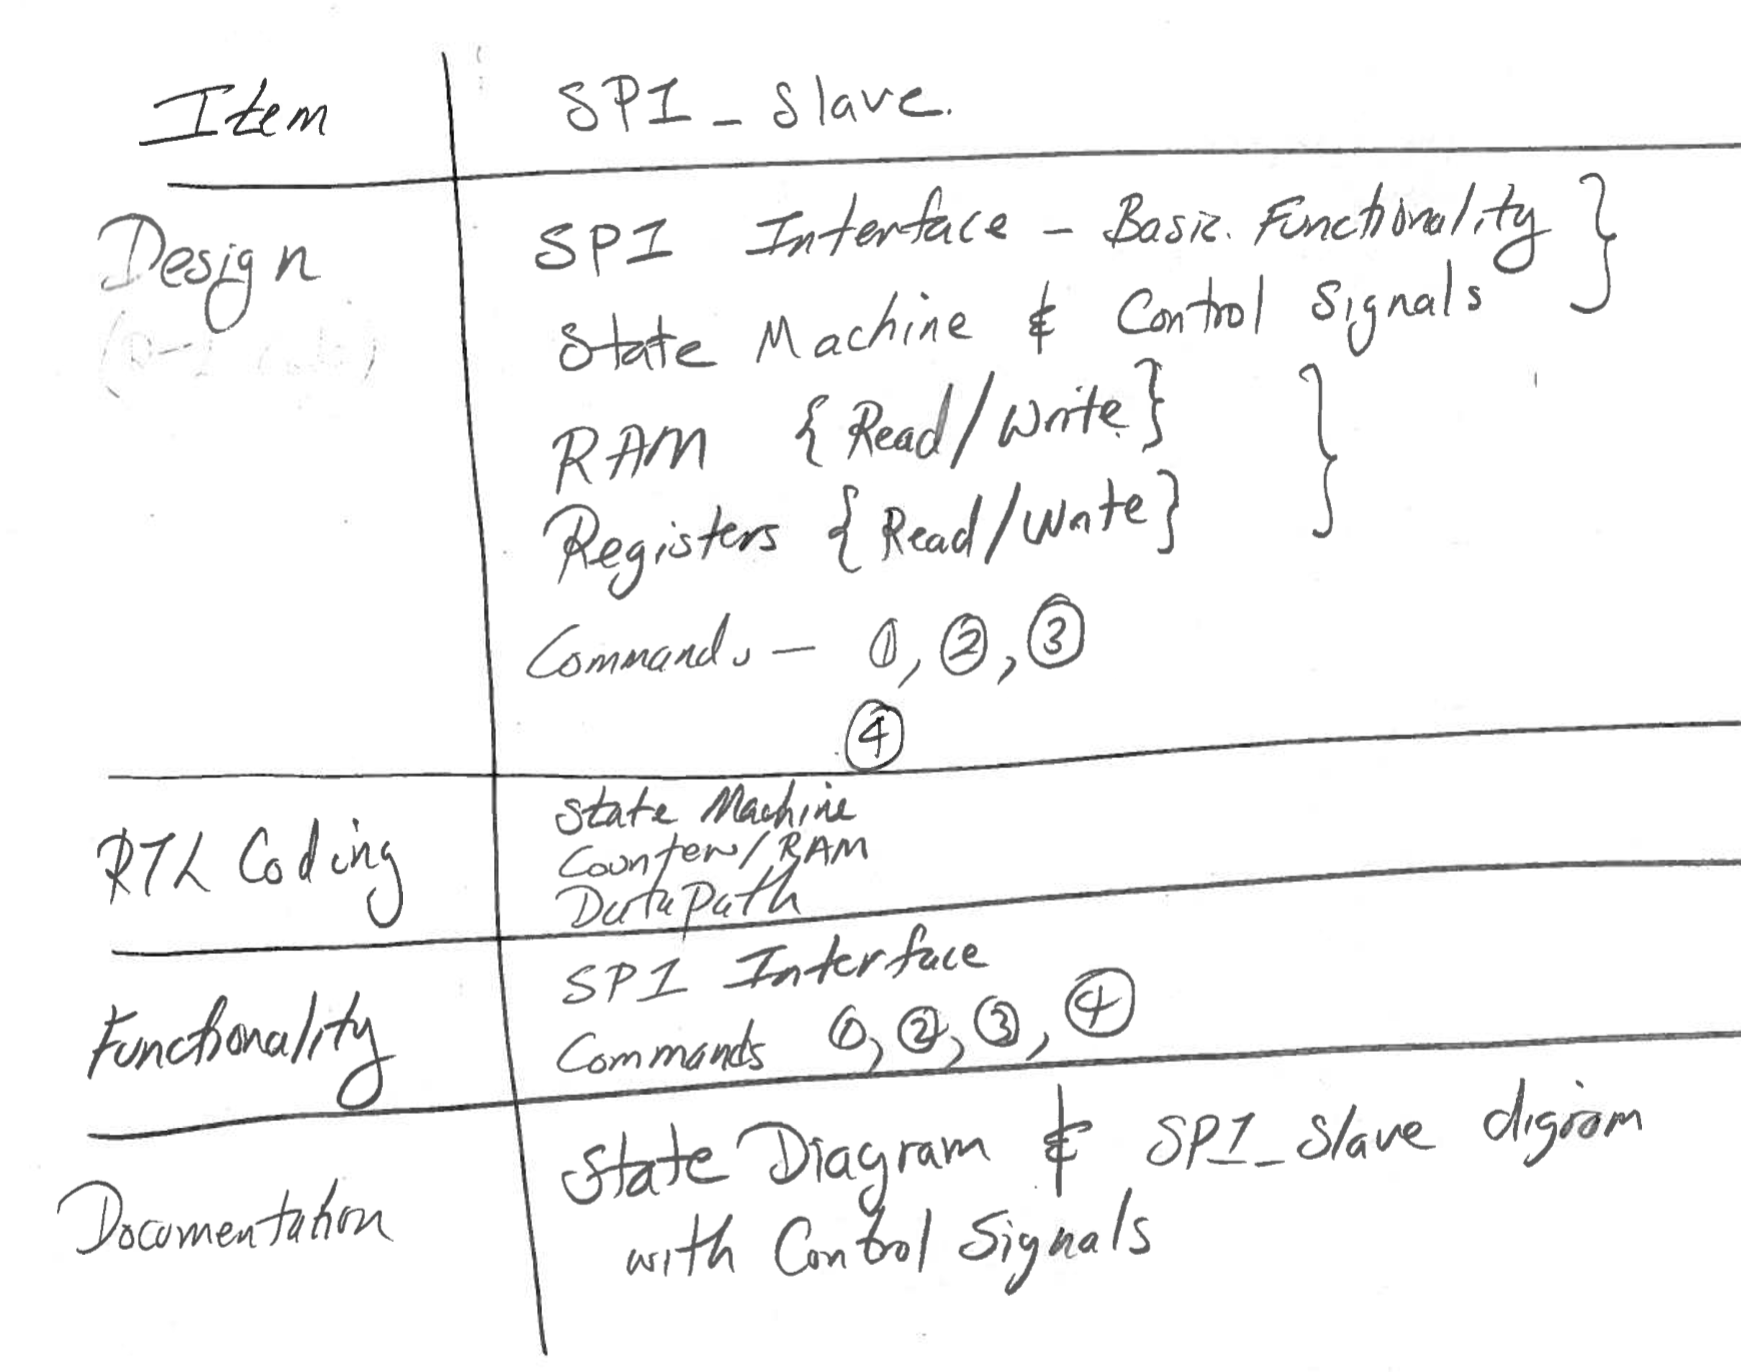 Item SPI_Slave.
Design SPI Interface - Basic. Functionality }
State Machine & Control Signals
RAM {Read/Write} }
Registers {Read/Write}
Commands - ①, ②, ③
④
RTL Coding State Machine
Counter/RAM
DataPath
Functionality SPI Interface
Commands ①, ②, ③, ④
Documentation State Diagram & SPI_Slave digram
with Control Signals